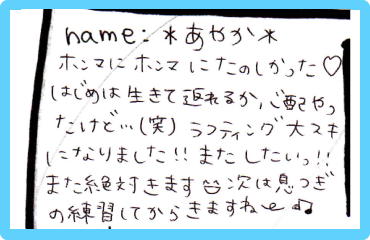 name: *あやか*
ホンマにホンマにたのしかった♡
はじめは生きて返れるか心配やっ
たけど…(笑) ラフティング大スキ
になりました!! またしたいっ!!
また絶対きます 次は息つぎ
の練習してからきますね♫